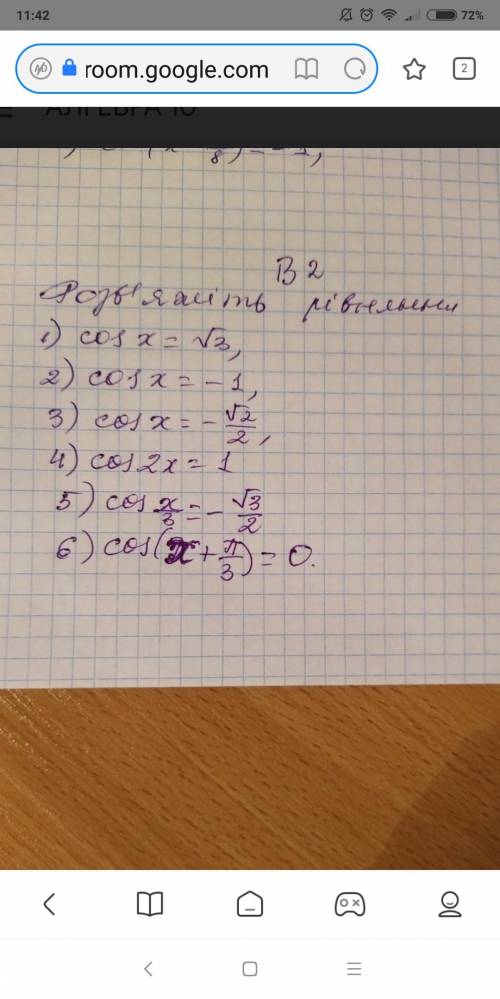 11:42
72%
room.google.com
2
АЛГЕБРА 10
В 2
Розв'яжіть рівняння
1) cos x = √3,
2) cos x = -1,
3) cos x = -√2/2,
4) cos 2x = 1
5) cos x/3 = -√3/2
6) cos(x + π/3) = 0.